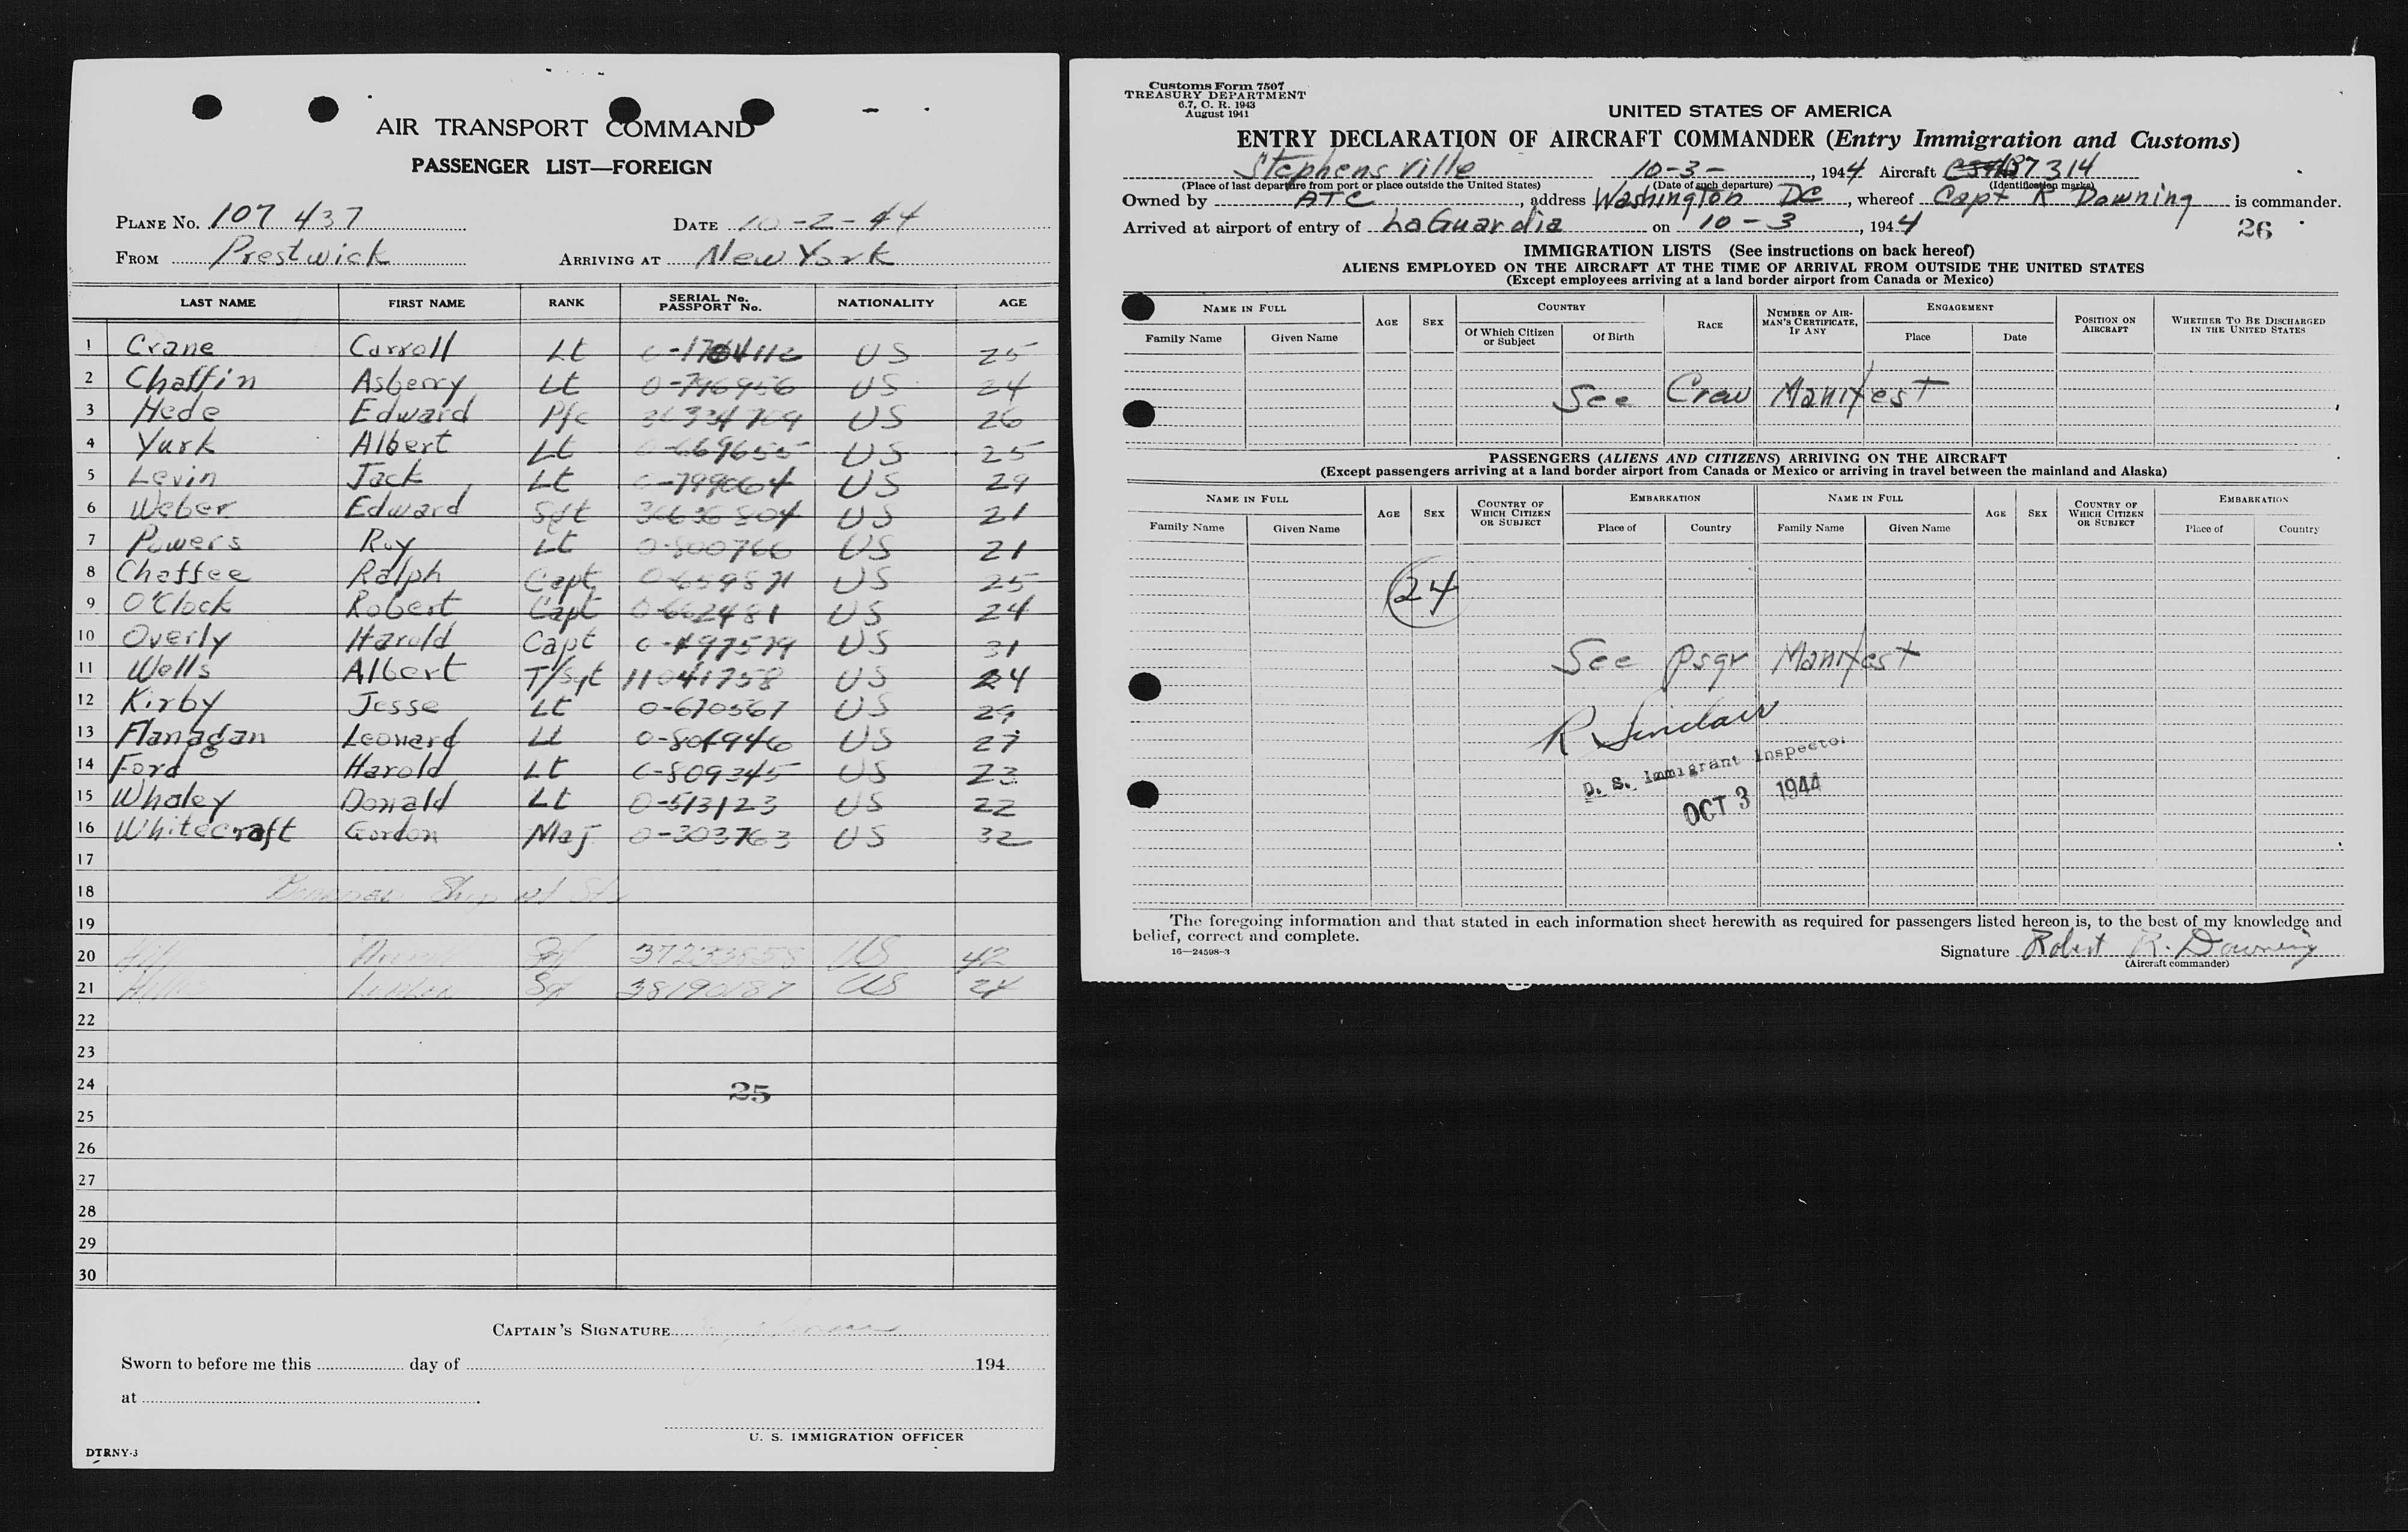 AIR TRANSPORT COMMAND
PASSENGER LIST—FOREIGN
PLANE No. 107 437 DATE 10-2-44
FROM Prestwick ARRIVING AT New York
LAST NAME FIRST NAME RANK SERIAL No. PASSPORT No. NATIONALITY AGE
1 Crane Carroll Lt US 25
2 Chaffin Asberry Lt O-796956 US 24
3 Hede Edward Pfc 36334709 US 26
4 Yurk Albert Lt O-669655 US 25
5 Levin Jack Lt O-799064 US 29
6 Weber Edward Sgt 36636804 US 21
7 Powers Roy Lt O-800766 US 21
8 Chaffee Ralph Capt O-659871 US 25
9 O'Clock Robert Capt O-662481 US 24
10 Overly Harold Capt US 31
11 Wells Albert T/Sgt 11041758 US 24
12 Kirby Jesse Lt O-670567 US 29
13 Flanagan Leonard Lt US 27
14 Ford Harold Lt O-809345 US 23
15 Whaley Donald Lt O-513123 US 22
16 Whitecraft Gordon Maj O-303763 US 32
17
18 Ship
19
20 37233858 US 42
21 Sgt 38190187 US 24
22
23
24
25
25
26
27
28
29
30
CAPTAIN'S SIGNATURE
Sworn to before me this day of 194
at .
U. S. IMMIGRATION OFFICER
DTRNY-3
Customs Form 7507
TREASURY DEPARTMENT
6.7, C. R. 1943
August 1941
UNITED STATES OF AMERICA
ENTRY DECLARATION OF AIRCRAFT COMMANDER (Entry Immigration and Customs)
Stephensville 10-3-, 1944 Aircraft 7314
(Place of last departure from port or place outside the United States) (Date of such departure) (Identification marks)
Owned by ATC, address Washington DC, whereof Capt R Downing is commander.
Arrived at airport of entry of LaGuardia on 10-3, 1944 26
IMMIGRATION LISTS (See instructions on back hereof)
ALIENS EMPLOYED ON THE AIRCRAFT AT THE TIME OF ARRIVAL FROM OUTSIDE THE UNITED STATES
(Except employees arriving at a land border airport from Canada or Mexico)
NAME IN FULL AGE SEX COUNTRY RACE NUMBER OF AIRMAN'S CERTIFICATE, IF ANY ENGAGEMENT POSITION ON AIRCRAFT WHETHER TO BE DISCHARGED IN THE UNITED STATES
Family Name Given Name Of Which Citizen or Subject Of Birth Place Date
See Crew Manifest
PASSENGERS (ALIENS AND CITIZENS) ARRIVING ON THE AIRCRAFT
(Except passengers arriving at a land border airport from Canada or Mexico or arriving in travel between the mainland and Alaska)
NAME IN FULL AGE SEX COUNTRY OF WHICH CITIZEN OR SUBJECT EMBARKATION NAME IN FULL AGE SEX COUNTRY OF WHICH CITIZEN OR SUBJECT EMBARKATION
Family Name Given Name Place of Country Family Name Given Name Place of Country
24
See psgr Manifest
R Sinclair
U. S. Immigrant Inspector
OCT 3 1944
The foregoing information and that stated in each information sheet herewith as required for passengers listed hereon is, to the best of my knowledge and
belief, correct and complete.
16—24598-3 Signature Robert R. Downing
(Aircraft commander)